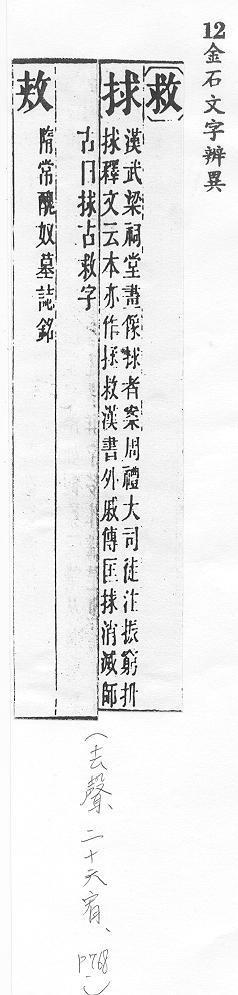 12 金石文字辨異
救
捄 漢武梁祠堂畫像捄者案周禮大司徒注振窮抍
捄釋文云本亦作拯救漢書外戚傳匡捄消滅師
古曰捄古救字
隋常醜奴墓誌銘
(去聲、二十六宥、P768.)